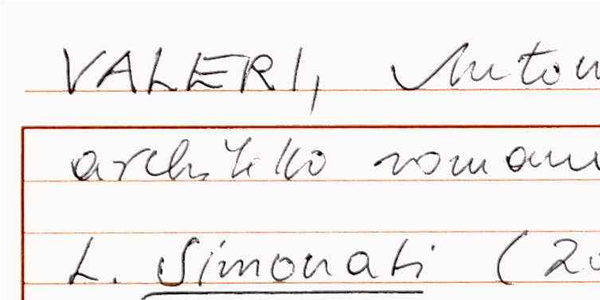 VALERI, Anton
architetto roman
L. Simonati (20